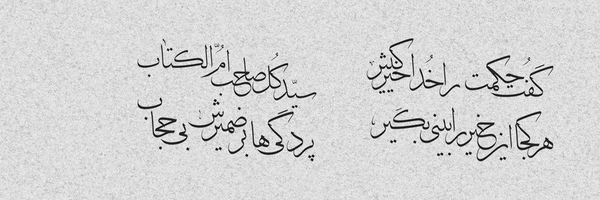 گفت حکمت را خدا خیر کثیر
هر کجا این خیر را بینی بگیر
سیّد کُل صاحب اُمّ الکتاب
پردگی ها بر ضمیرش بی حجاب